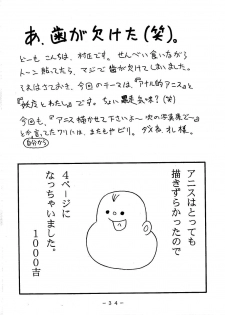 あ、歯が欠けた(笑)。
どーも こんちは、村正です。せんべい食いながら
トーン貼ってたら、マジで歯が欠けてしまいました。
それはさておき、今回のテーマは、『アナル的アニス』と
『妖度とわたし』です。ちょい暴走気味?(笑)
今回も、『アニス描かせて下さいよ〜 次の写真集で〜』
とか言ってたワリには、またもやビリ。ダメね、オレ様。
(自分から)
アニスはとっても
描きずらかったので
4ページに
なっちゃいました。
1000吉
-34-